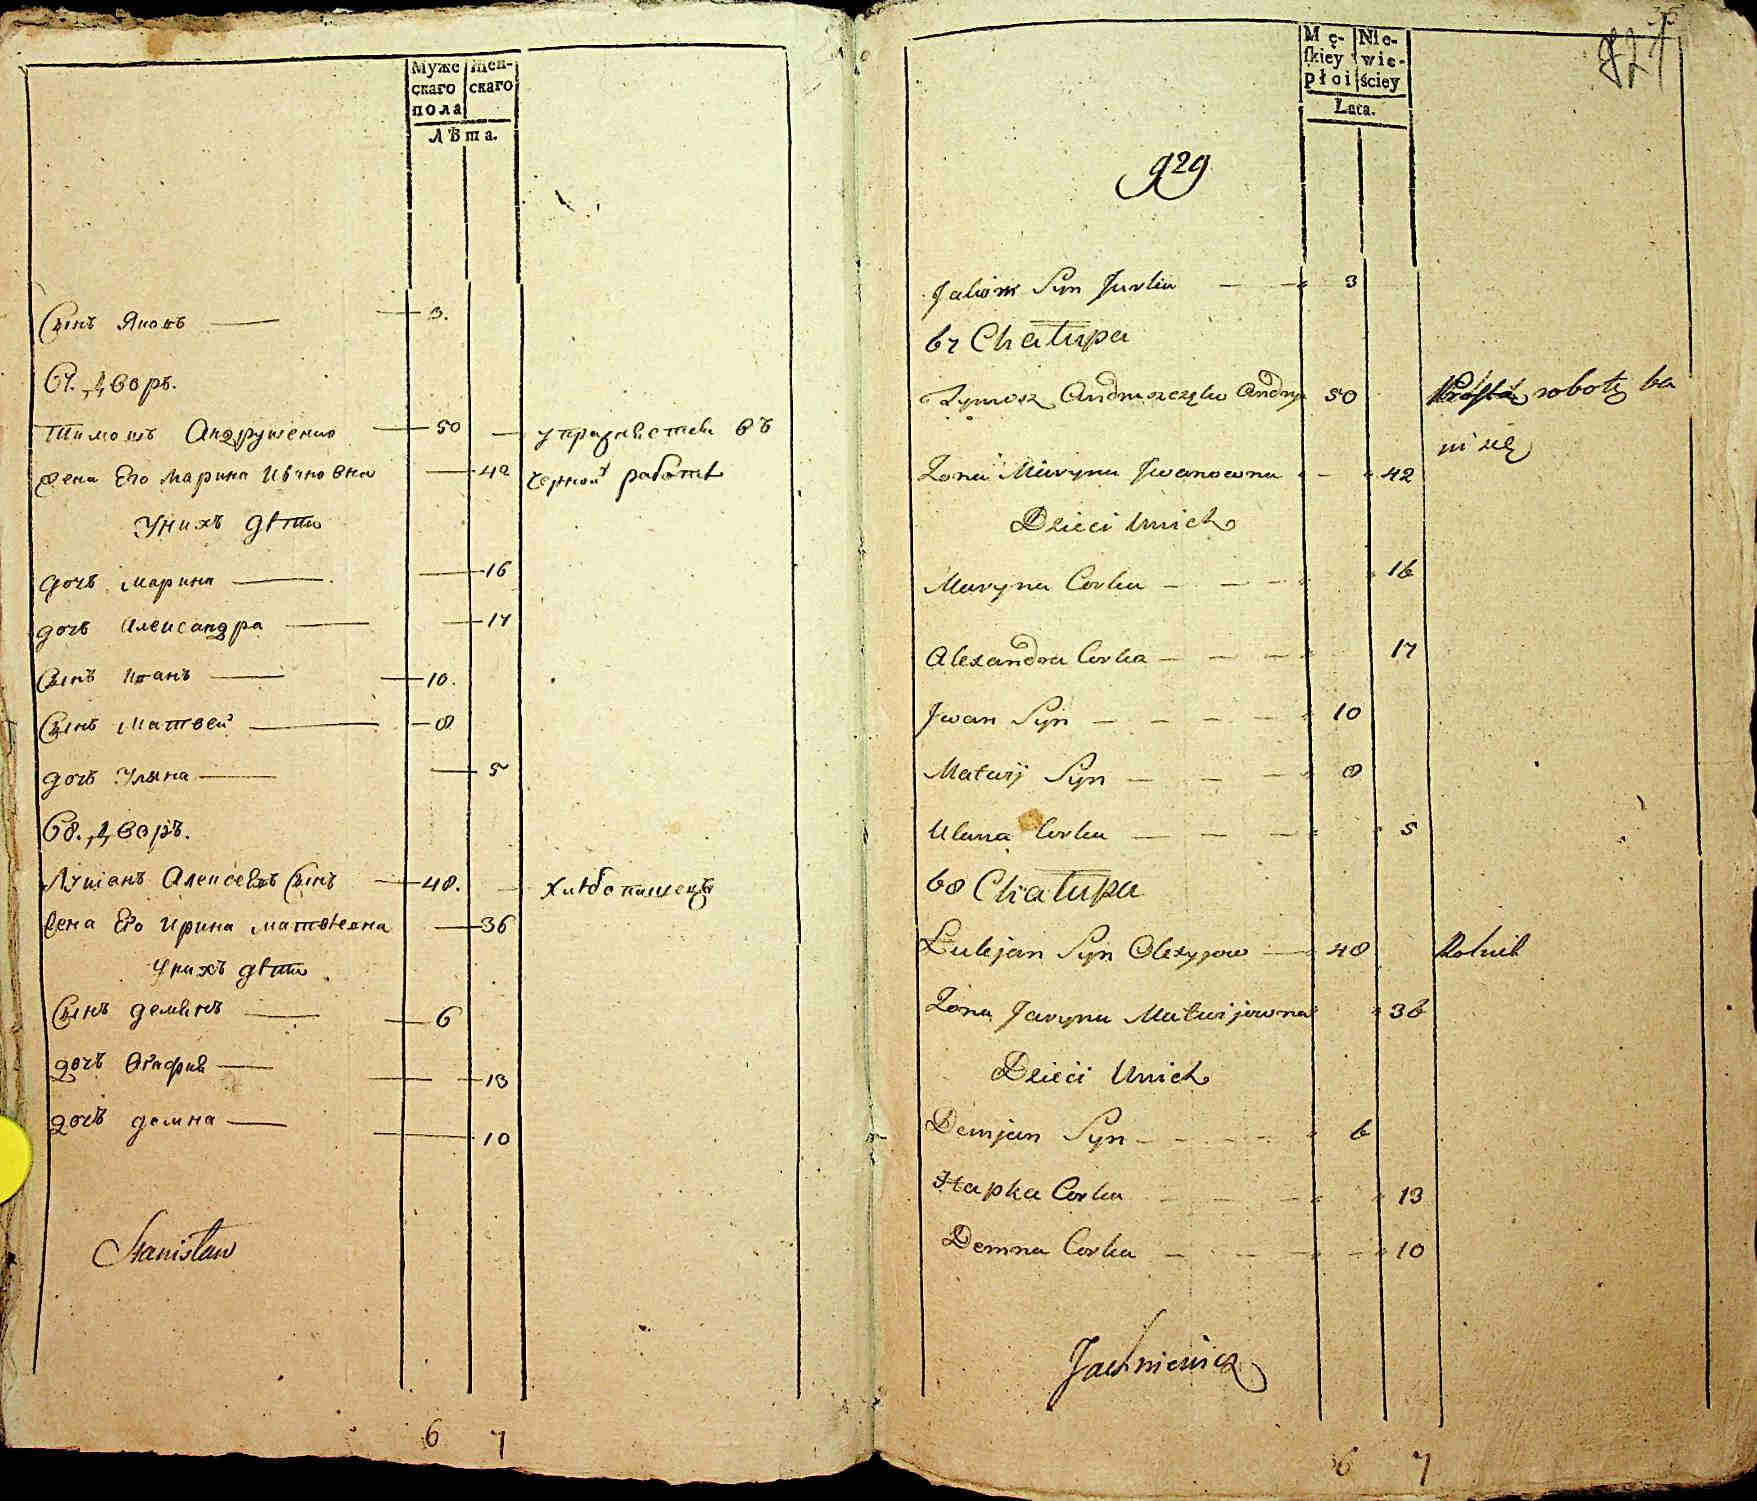 Муже
скаго
пола
Жен-
скаго
Лѣта.
Сынъ Яковъ 3.
67. Дворъ.
Тимошъ Андрушенко 50 упражняется въ
жена Его Марина Ивановна 42 черной работѣ
У нихъ дѣти
дочь Марина 16
дочь Александра 17
Сынъ Иванъ 10.
Сынъ Матвей 8
дочь Уляна 5
68. Дворъ.
Лукіанъ Алексеевъ Сынъ 48. Хлѣбопашецъ
жена Его Ирина Матвѣевна 36
У нихъ дѣти
Сынъ Демянъ 6
дочь Агафия 13
дочь Демна 10
Stanisław
6 7
Mę-
skiey
płoi
Nie-
wie-
ściey
Lata.
929
Jakow Syn Jurka 3
67 Chałupa
Tymosz Andruszczęko Andry 50 robotę ba
wi się
Żona Maryna Jwanowna 42
Dzieci Unich
Maryna Corka 16
Alexandra Corka 17
Jwan Syn 10
Matwij Syn 8
Ulana Corka 5
68 Chałupa
Łukjan Syn Olexyjow 48 Rolnik
Żona Jaryna Matwijowna 36
Dzieci Unich
Demjan Syn 6
Hapka Corka 13
Demna Corka 10
Jachniewicz
6 7